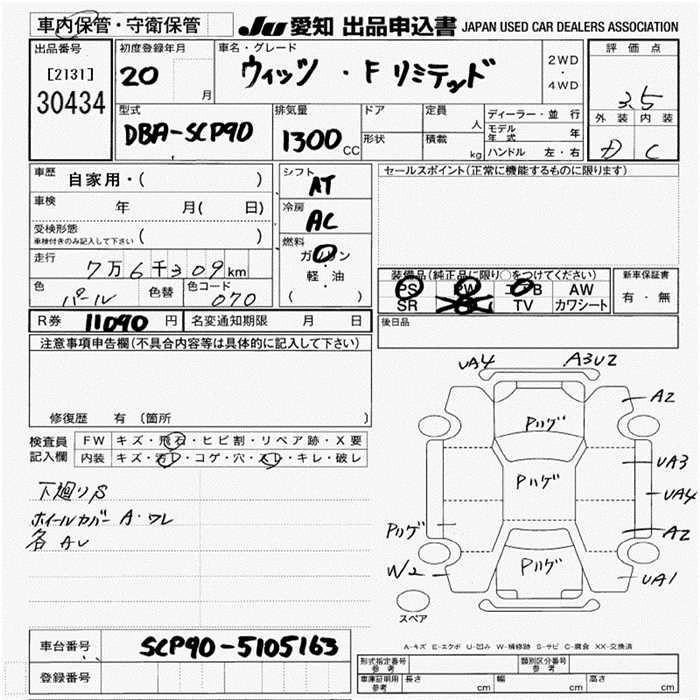 車内保管・守衛保管
JU 愛知 出品申込書 JAPAN USED CAR DEALERS ASSOCIATION
出品番号
[2131]
30434
初度登録年月
20
月
車名・グレード
ウィッツ・F リミテッド
2WD
・
4WD
評価点
3.5
外装 内装
D C
型式
DBA-SCP90
排気量
1300 CC
ドア
形状
定員
人
積載
kg
ディーラー・並行
モデル年式 年
ハンドル 左・右
車歴
自家用・( )
車検
年 月( 日)
受検形態
車検付きのみ記入して下さい ( )
走行
7万6千309km
色
パール
色替
色コード
070
シフト
AT
冷房
AC
燃料
ガソリン
・
軽・油
( )
セールスポイント(正常に機能するものに限ります)
装備品(純正品に限り○をつけてください)
PS PW エアB AW
SR TV カワシート
新車保証書
有・無
R券 11090 円
名変通知期限 月 日
後日品
注意事項申告欄(不具合内容等は具体的に記入して下さい)
修復歴 有(箇所 )
検査員
記入欄
FW キズ・飛石・ヒビ割・リペア跡・X要
内装 キズ・汚レ・コゲ・穴・スレ・キレ・破レ
下廻りS
ホイールカバー A・ワレ
各 AU
UA4 A3U2
A2
Pハゲ
UA3
Pハゲ
UA4
Pハゲ
A2
W2
Pハゲ
UA1
スペア
A-キズ E-エクボ U-凹み W-補修跡 S-サビ C-腐食 XX-交換済
車台番号 SCP90-5105163
登録番号
型式指定番号
参考
類別区分番号
参考
車庫証明用
参考
長さ cm
幅 cm
高さ cm